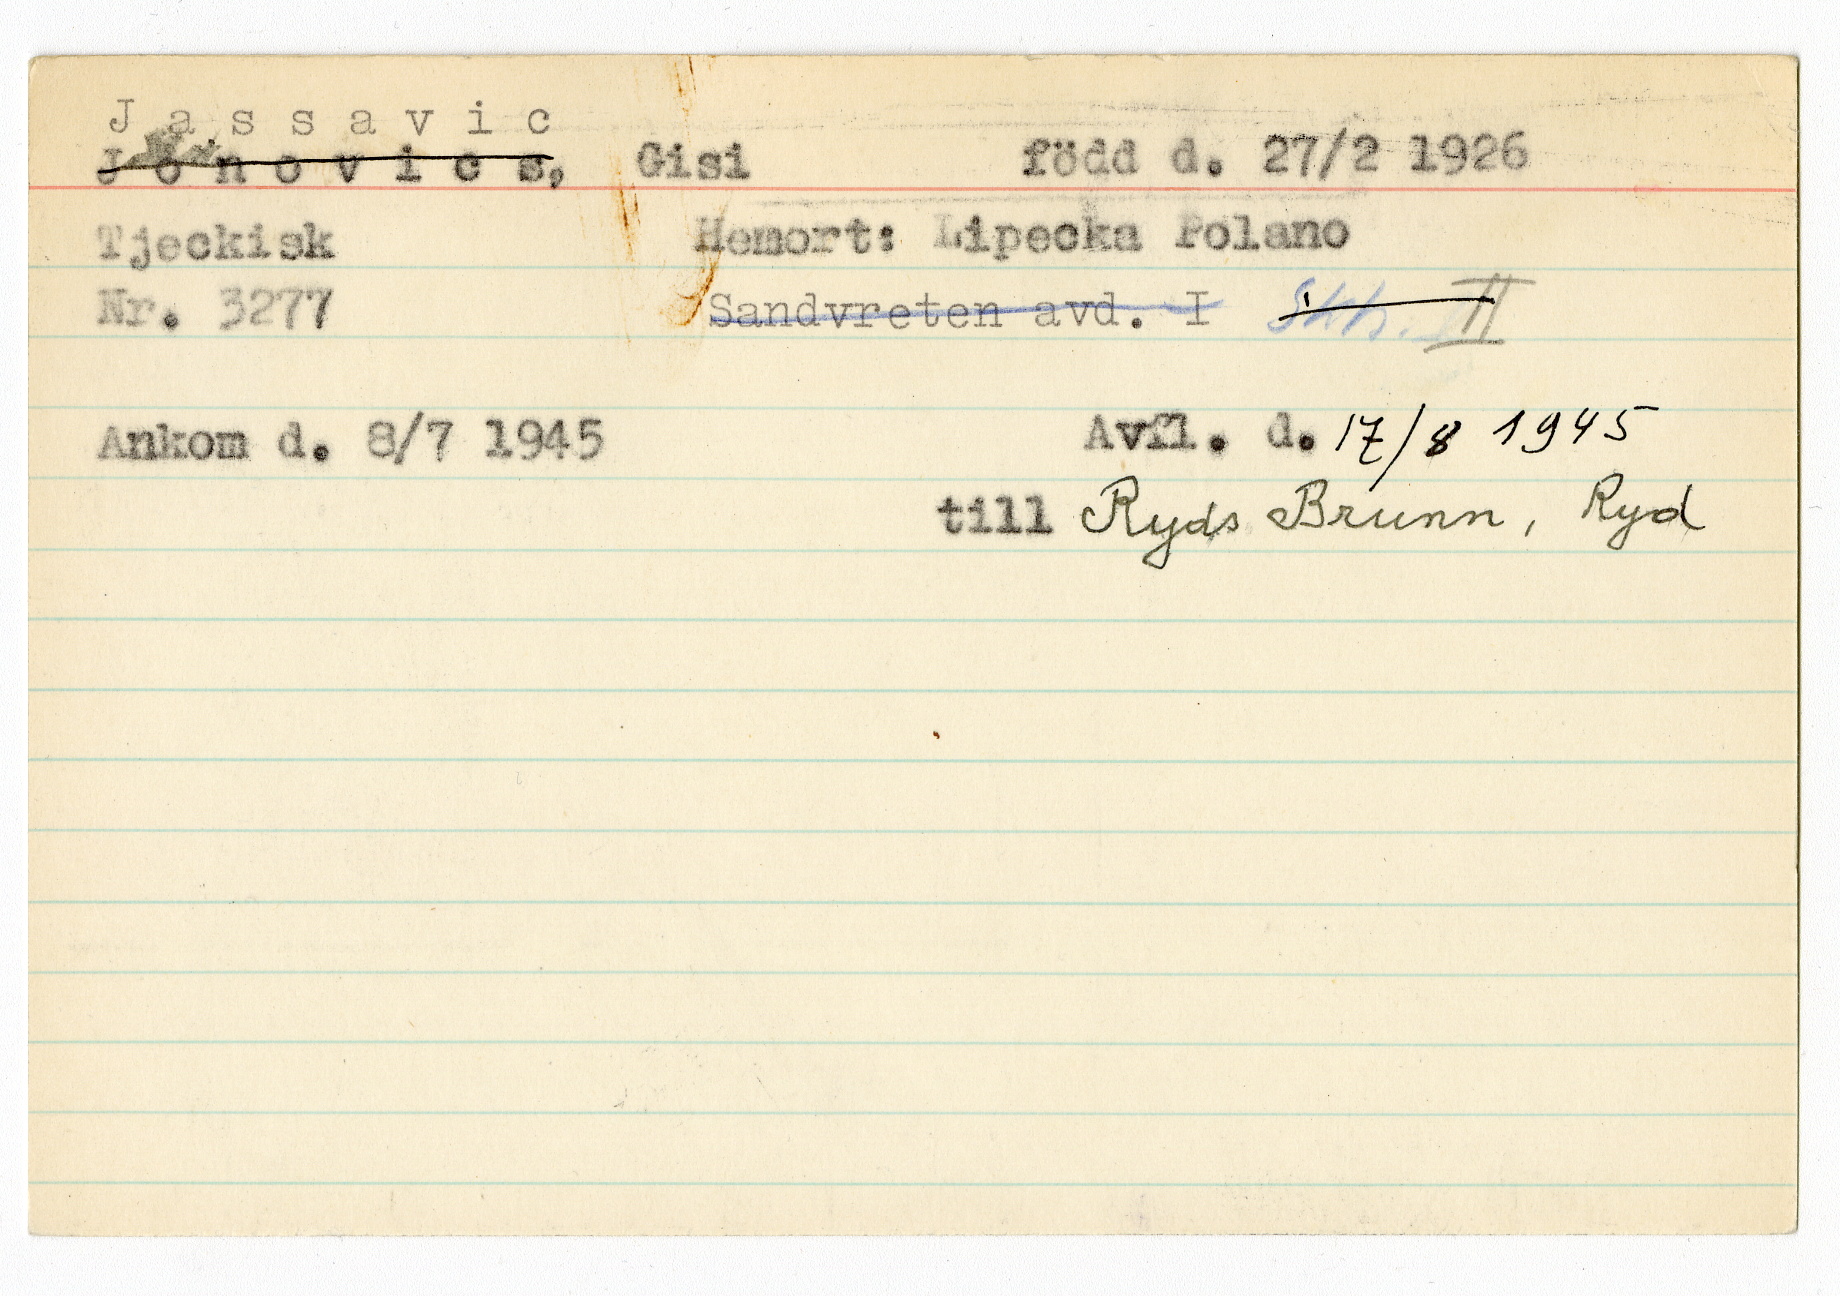 J a s s a v i c
J o n o v i c s, Gisi född d. 27/2 1926
Tjeckisk Hemort: Lipecka Polano
Nr. 3277 Sandvreten avd. I II
Ankom d. 8/7 1945 Avfl. d. 17/8 1945
till Ryds Brunn, Ryd